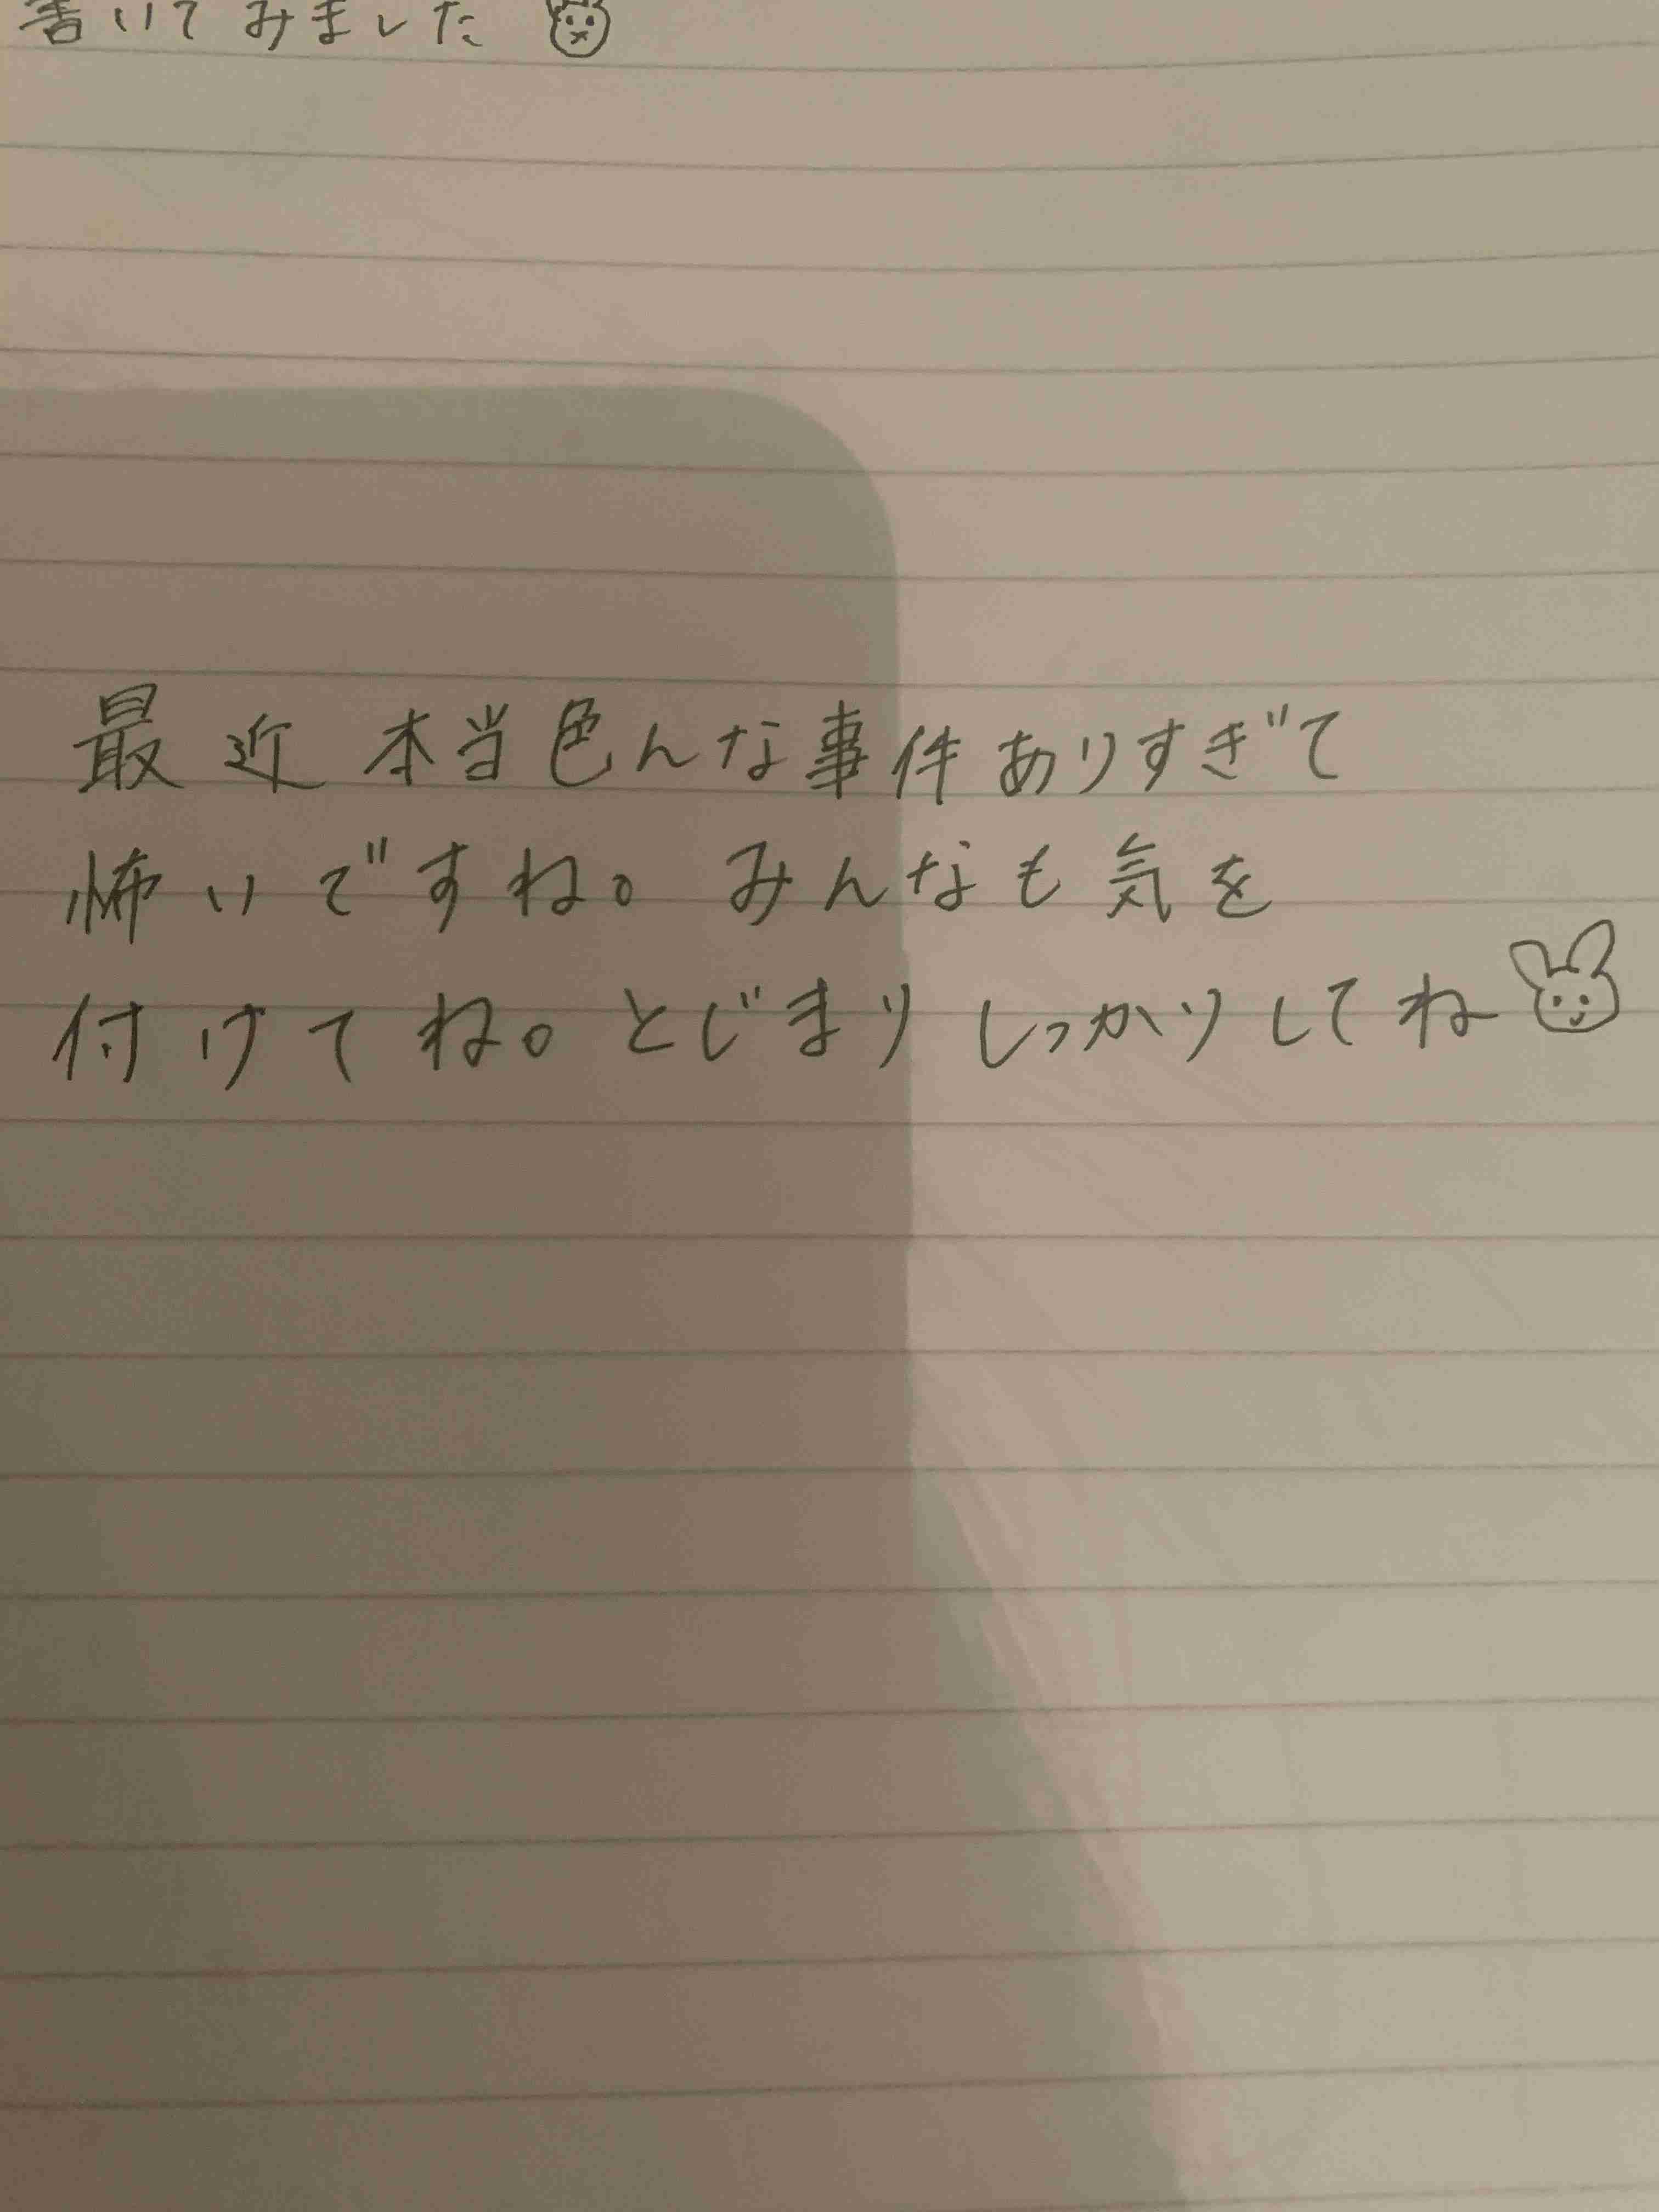 書いてみました
最近本当色んな事件ありすぎて
怖いですね。みんなも気を
付けてね。とじまりしっかりしてね